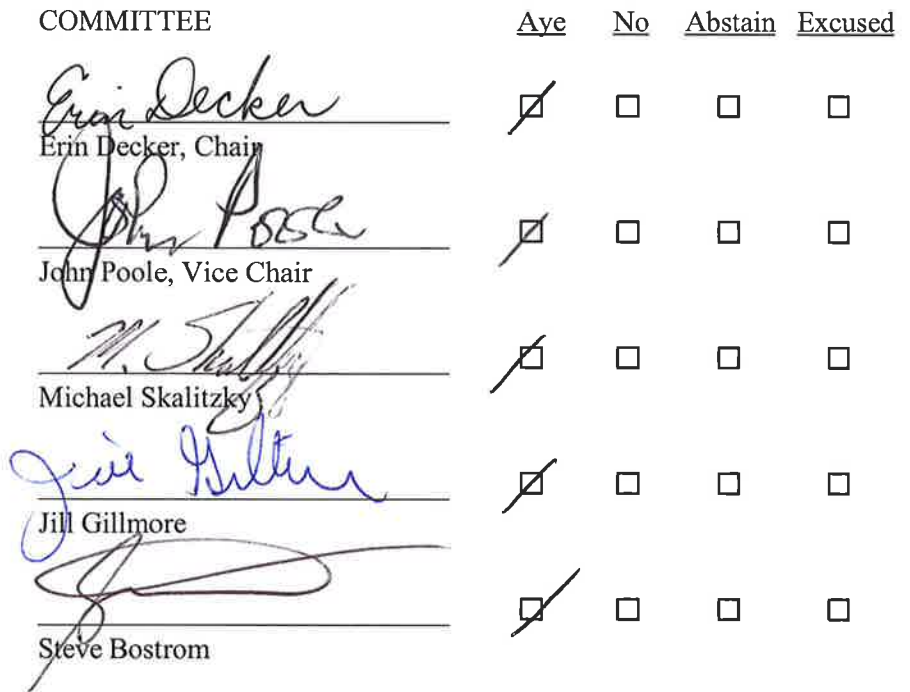 COMMITTEE Aye No Abstain Excused
Erin Decker
Erin Decker, Chair
John Poole
John Poole, Vice Chair
M. Skalitzky
Michael Skalitzky
Jill Gillmore
Jill Gillmore
Steve Bostrom